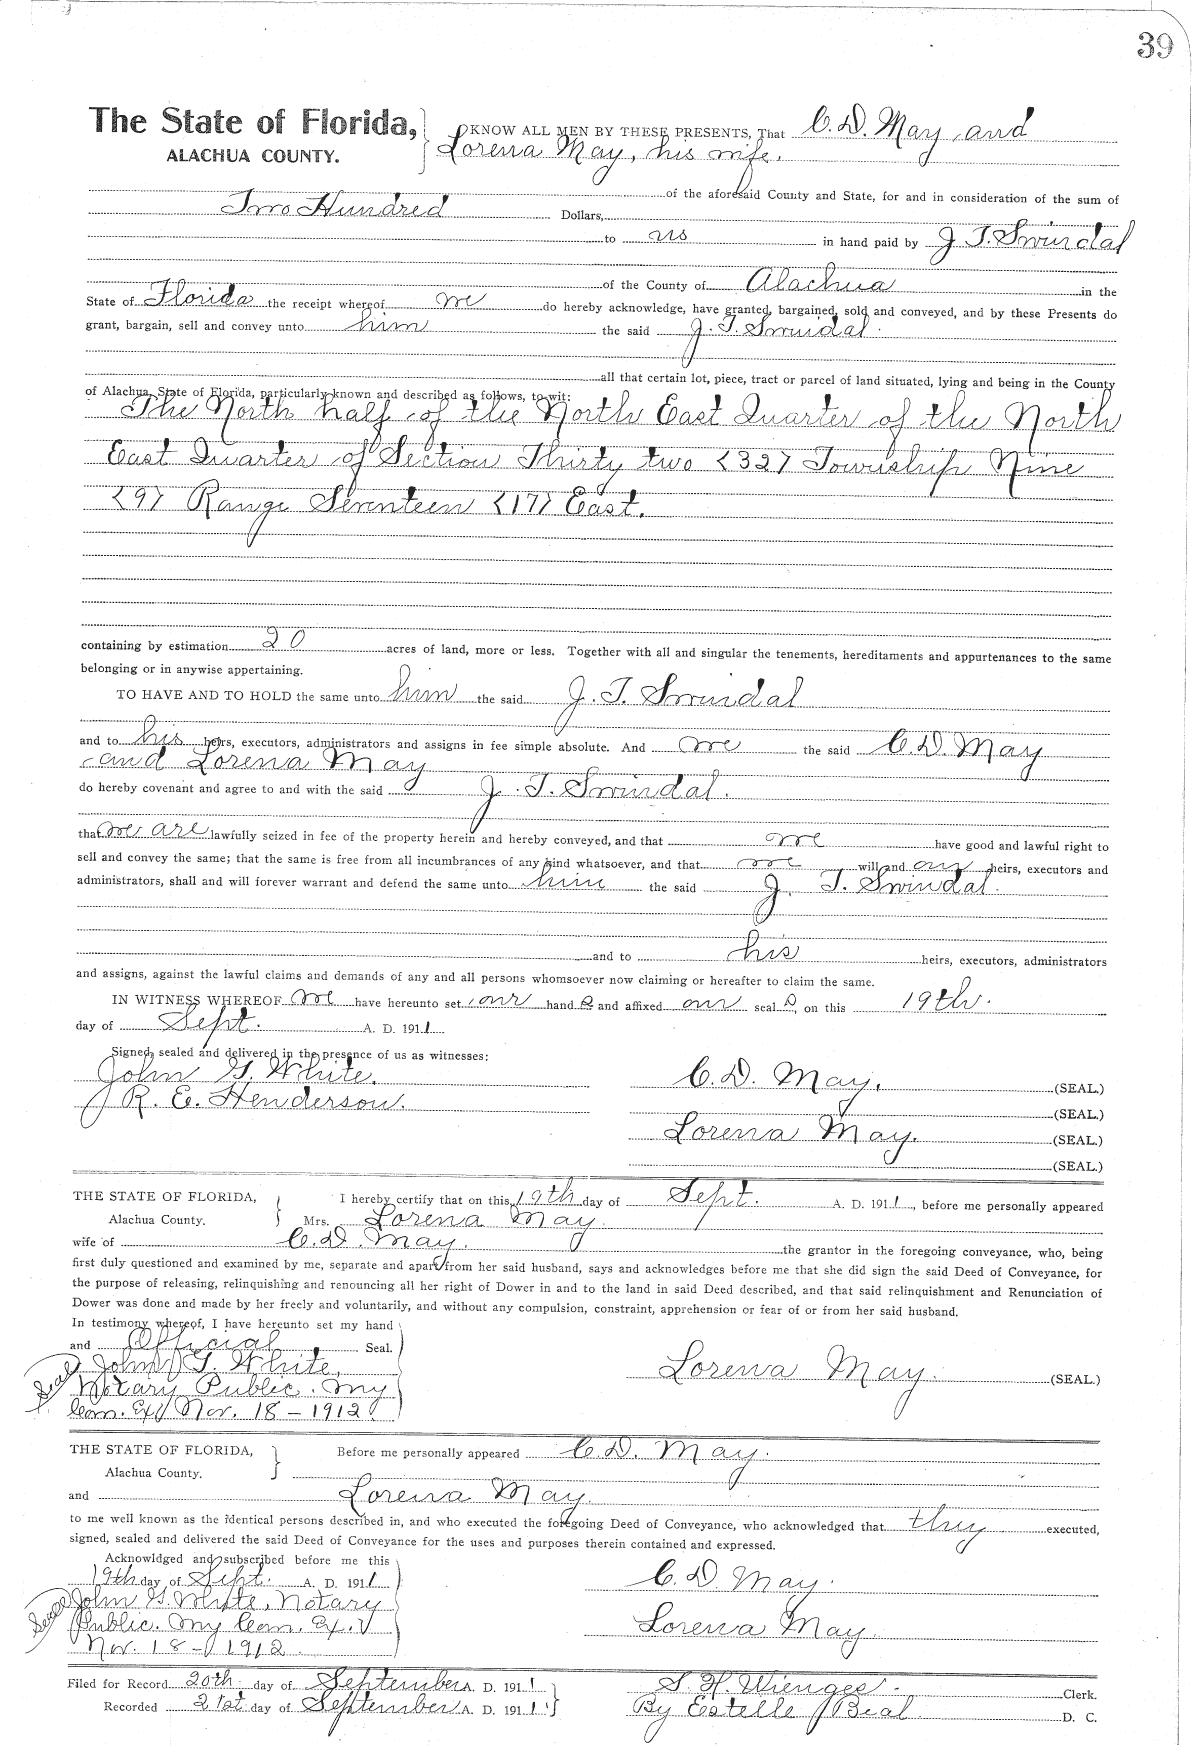 39
The State of Florida,
ALACHUA COUNTY.
KNOW ALL MEN BY THESE PRESENTS, That C. D. May and
Lorena May, his wife.
of the aforesaid County and State, for and in consideration of the sum of
Two Hundred Dollars,
to us in hand paid by J. T. Swindal
of the County of Alachua in the
State of Florida the receipt whereof we do hereby acknowledge, have granted, bargained, sold and conveyed, and by these Presents do
grant, bargain, sell and convey unto him the said J. T. Swindal.
all that certain lot, piece, tract or parcel of land situated, lying and being in the County
of Alachua, State of Florida, particularly known and described as follows, to-wit:
The North half of the North East Quarter of the North
East Quarter of Section Thirty two <32> Township Nine
<9> Range Seventeen <17> East.
containing by estimation 20 acres of land, more or less. Together with all and singular the tenements, hereditaments and appurtenances to the same
belonging or in anywise appertaining.
TO HAVE AND TO HOLD the same unto him the said J. T. Swindal
and to his heirs, executors, administrators and assigns in fee simple absolute. And we the said C. D. May
and Lorena May
do hereby covenant and agree to and with the said J. T. Swindal.
that we are lawfully seized in fee of the property herein and hereby conveyed, and that we have good and lawful right to
sell and convey the same; that the same is free from all incumbrances of any kind whatsoever, and that we will and our heirs, executors and
administrators, shall and will forever warrant and defend the same unto him the said J. T. Swindal.
and to his heirs, executors, administrators
and assigns, against the lawful claims and demands of any and all persons whomsoever now claiming or hereafter to claim the same.
IN WITNESS WHEREOF we have hereunto set our hand s and affixed our seal s, on this 19th.
day of Sept. A. D. 1911
Signed, sealed and delivered in the presence of us as witnesses:
John G. White.
R. E. Henderson.
C. D. May. (SEAL.)
(SEAL.)
Lorena May. (SEAL.)
(SEAL.)
THE STATE OF FLORIDA,
Alachua County.
I hereby certify that on this 19th day of Sept. A. D. 1911, before me personally appeared
Mrs. Lorena May.
wife of C. D. May. the grantor in the foregoing conveyance, who, being
first duly questioned and examined by me, separate and apart from her said husband, says and acknowledges before me that she did sign the said Deed of Conveyance, for
the purpose of releasing, relinquishing and renouncing all her right of Dower in and to the land in said Deed described, and that said relinquishment and Renunciation of
Dower was done and made by her freely and voluntarily, and without any compulsion, constraint, apprehension or fear of or from her said husband.
In testimony whereof, I have hereunto set my hand
and Official Seal.
Seal
John G. White,
Notary Public. My
Com. Ex. Nov. 18-1912.
Lorena May. (SEAL.)
THE STATE OF FLORIDA,
Alachua County.
Before me personally appeared C. D. May.
and Lorena May.
to me well known as the identical persons described in, and who executed the foregoing Deed of Conveyance, who acknowledged that they executed,
signed, sealed and delivered the said Deed of Conveyance for the uses and purposes therein contained and expressed.
Acknowldged and subscribed before me this
19th day of Sept. A. D. 1911
Seal
John G. White, Notary
Public. My Com. Ex.
Nov. 18-1912.
C. D. May.
Lorena May.
Filed for Record 20th. day of September A. D. 1911
Recorded 21st day of September A. D. 1911.
S. H. Wienges. Clerk.
By Estelle Beal. D. C.